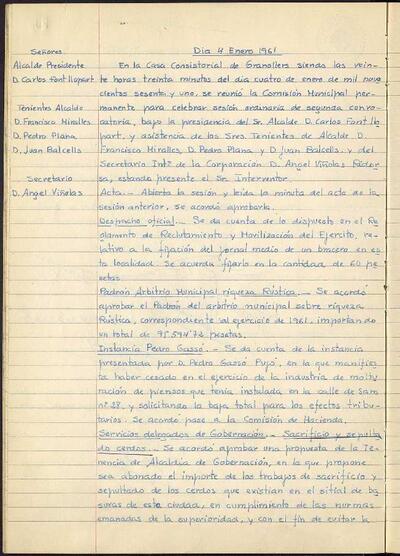 Señores
Alcalde Presidente
D. Carlos Font Llopart
Tenientes Alcalde
D. Francisco Miralles
D. Pedro Plana
D. Juan Balcells
Secretario
D. Angel Viñolas
Dia 4 Enero 1961
En la Casa Consistorial de Granollers siendo las vein-
te horas treinta minutos del dia cuatro de enero de mil nove
cientos sesenta y uno, se reunió la Comisión Municipal per-
manente para celebrar sesión ordinaria de segunda convo-
catoria, bajo la presidencia del Sr. Alcalde D. Carlos Font Llo
part, y asistencia de los Sres. Tenientes de Alcalde D.
Francisco Miralles, D. Pedro Plana y D. Juan Balcells, y del
Secretario Intº de la Corporación D. Angel Viñolas
sa, estando presente el Sr. Interventor
Acta.- Abierta la sesión y leida la minuta del acta de la
sesión anterior, se acordó aprobarla.
Despacho oficial.- Se da cuenta de lo dispuesto en el Re
glamento de Reclutamiento y Movilización del Ejercito, re-
lativo a la fijación del jornal medio de un bracero en es
ta localidad. Se acuerda fijarlo en la cantidad de 60 pe
setas.
Padrón Arbitrio Municipal riqueza Rústica.- Se acordó
aprobar el Padrón del arbitrio municipal sobre riqueza
Rústica, correspondiente al ejercicio de 1961, importando
un total de 95.594'72 pesetas.
Instancia Pedro Gassó.- Se da cuenta de la instancia
presentada por D. Pedro Gassó Pujó, en la que manifies
ta haber cesado en el ejercicio de la industria de moltu
ración de piensos que tenía instalada en la calle de
nº 28, y solicitando la baja total para los efectos tribu-
tarios. Se acordó pase a la Comisión de Hacienda.
Servicios delegados de Gobernación.- Sacrificio y sepulta
do cerdos.- Se acordó aprobar una propuesta de la Te
nencia de Alcaldia de Gobernación, en la que propone
sea abonado el importe de los trabajos de sacrificio y
sepultado de los cerdos que existian en el sitial de ba
suras de esta ciudad, en cumplimiento de las normas
emanadas de la superioridad, y con el fin de evitar la